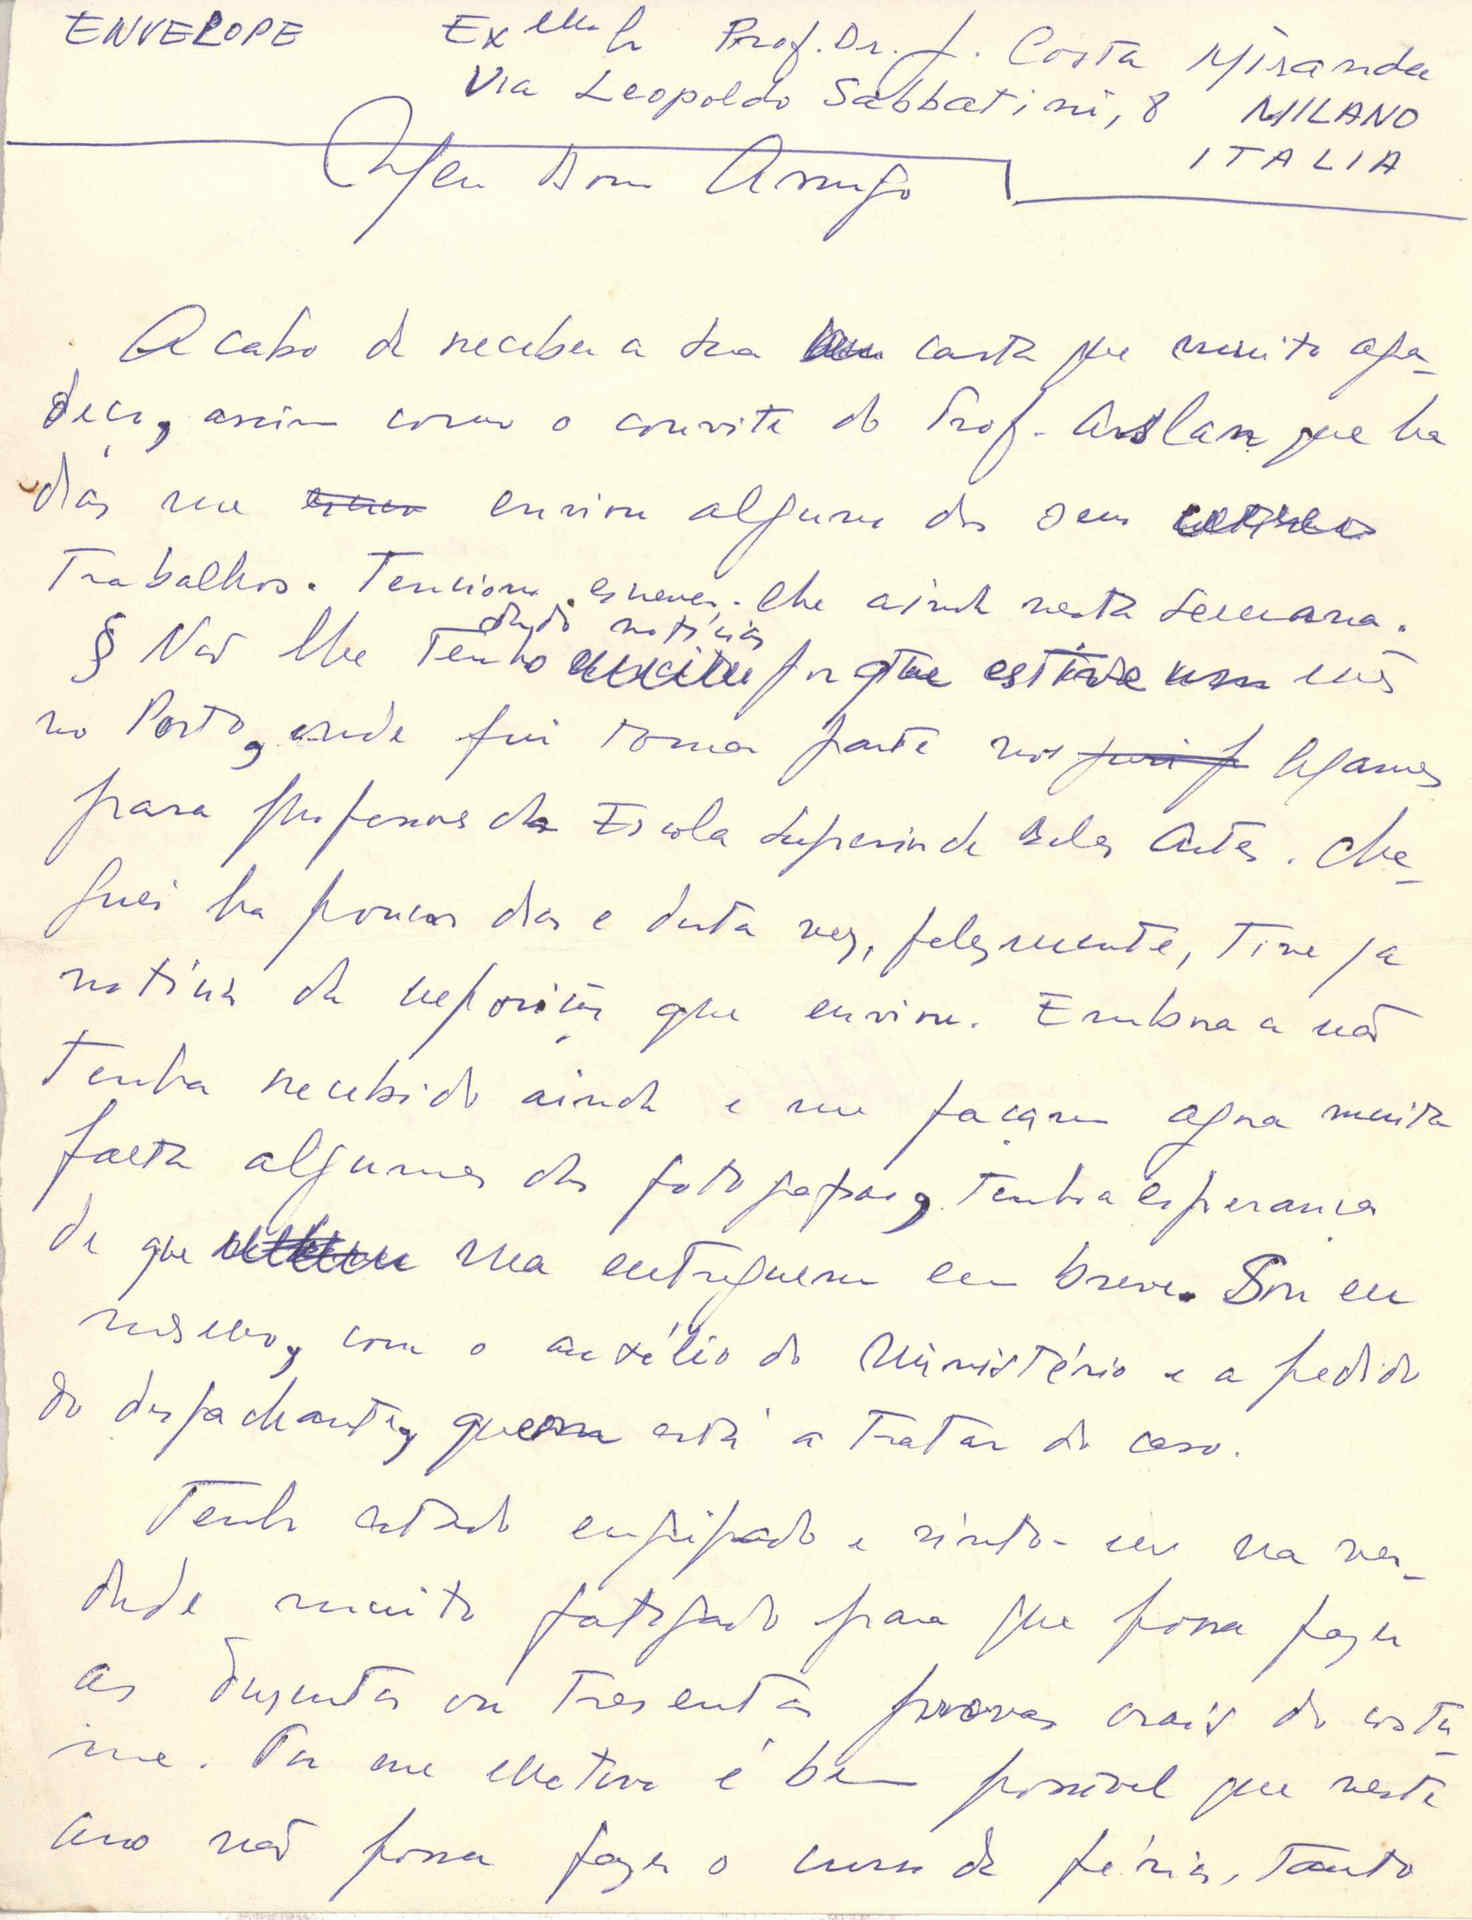 ENVELOPE Exmo Sr Prof. Dr. J. Costa Miranda
Via Leopoldo Sabbatini, 8 MILANO
ITALIA
Meu Bom Amigo
Acabo de receber a sua carta que muito agra-
deço, assim como o convite do Prof. Arslan que ha
dias me enviou alguns dos seus
Trabalhos. Tenciono escrever-lhe ainda nesta semana.
§ Não lhe Tenho dado notícias porque estive um mês
no Porto, onde fui tomar parte nos exames
para professores da Escola Superior de Belas Artes. Che-
guei ha poucos dias e desta vez, felizmente, Tive ja
notícias da reposição que enviou. Embora a não
Tenha recebido ainda e me façam agora muita
falta algumas das fotografias, Tenho a esperança
de que ma entreguem em breve. Sou eu
mesmo, com o auxílio do Ministério e a pedido
do despachante, quem está a Tratar do caso.
Tenho estado engripado e sinto-me na ver-
dade muito fatigado para que possa fazer
as duzentas ou Tresentas provas orais do costu-
me. Por me motivo é bem possível que neste
ano não possa fazer o curso de férias, Tanto